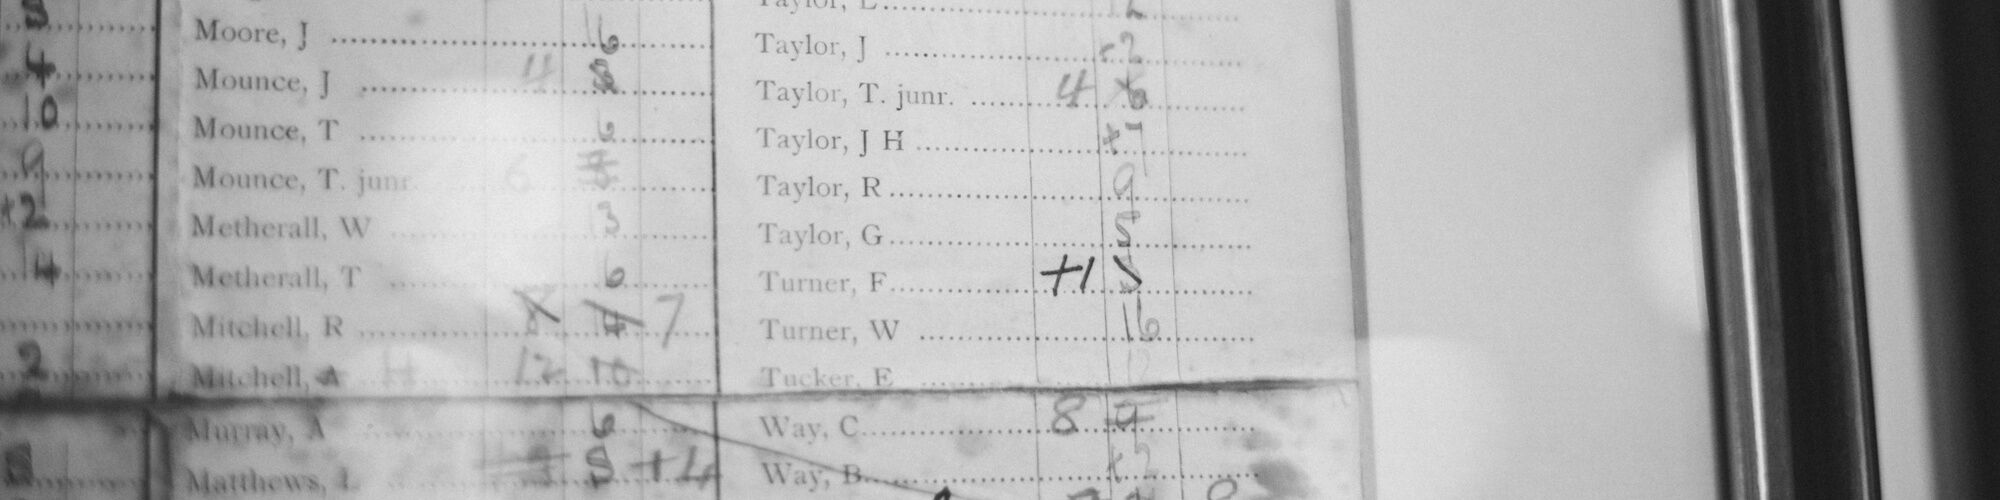 3
4
10
9
+2
14
2
Moore, J 16
Mounce, J 4 8
Mounce, T 6
Mounce, T. junr. 6
Metherall, W 3
Metherall, T 6
Mitchell, R 8 7
Mitchell, A H 12 10
Murray, A 6
Matthews, 5 +4
Taylor, L
Taylor, J +2
Taylor, T. junr. 4
Taylor, J H +1
Taylor, R 9
Taylor, G 5
Turner, F +1
Turner, W 16
Tucker, E 12
Way, C 8
Way, B +2